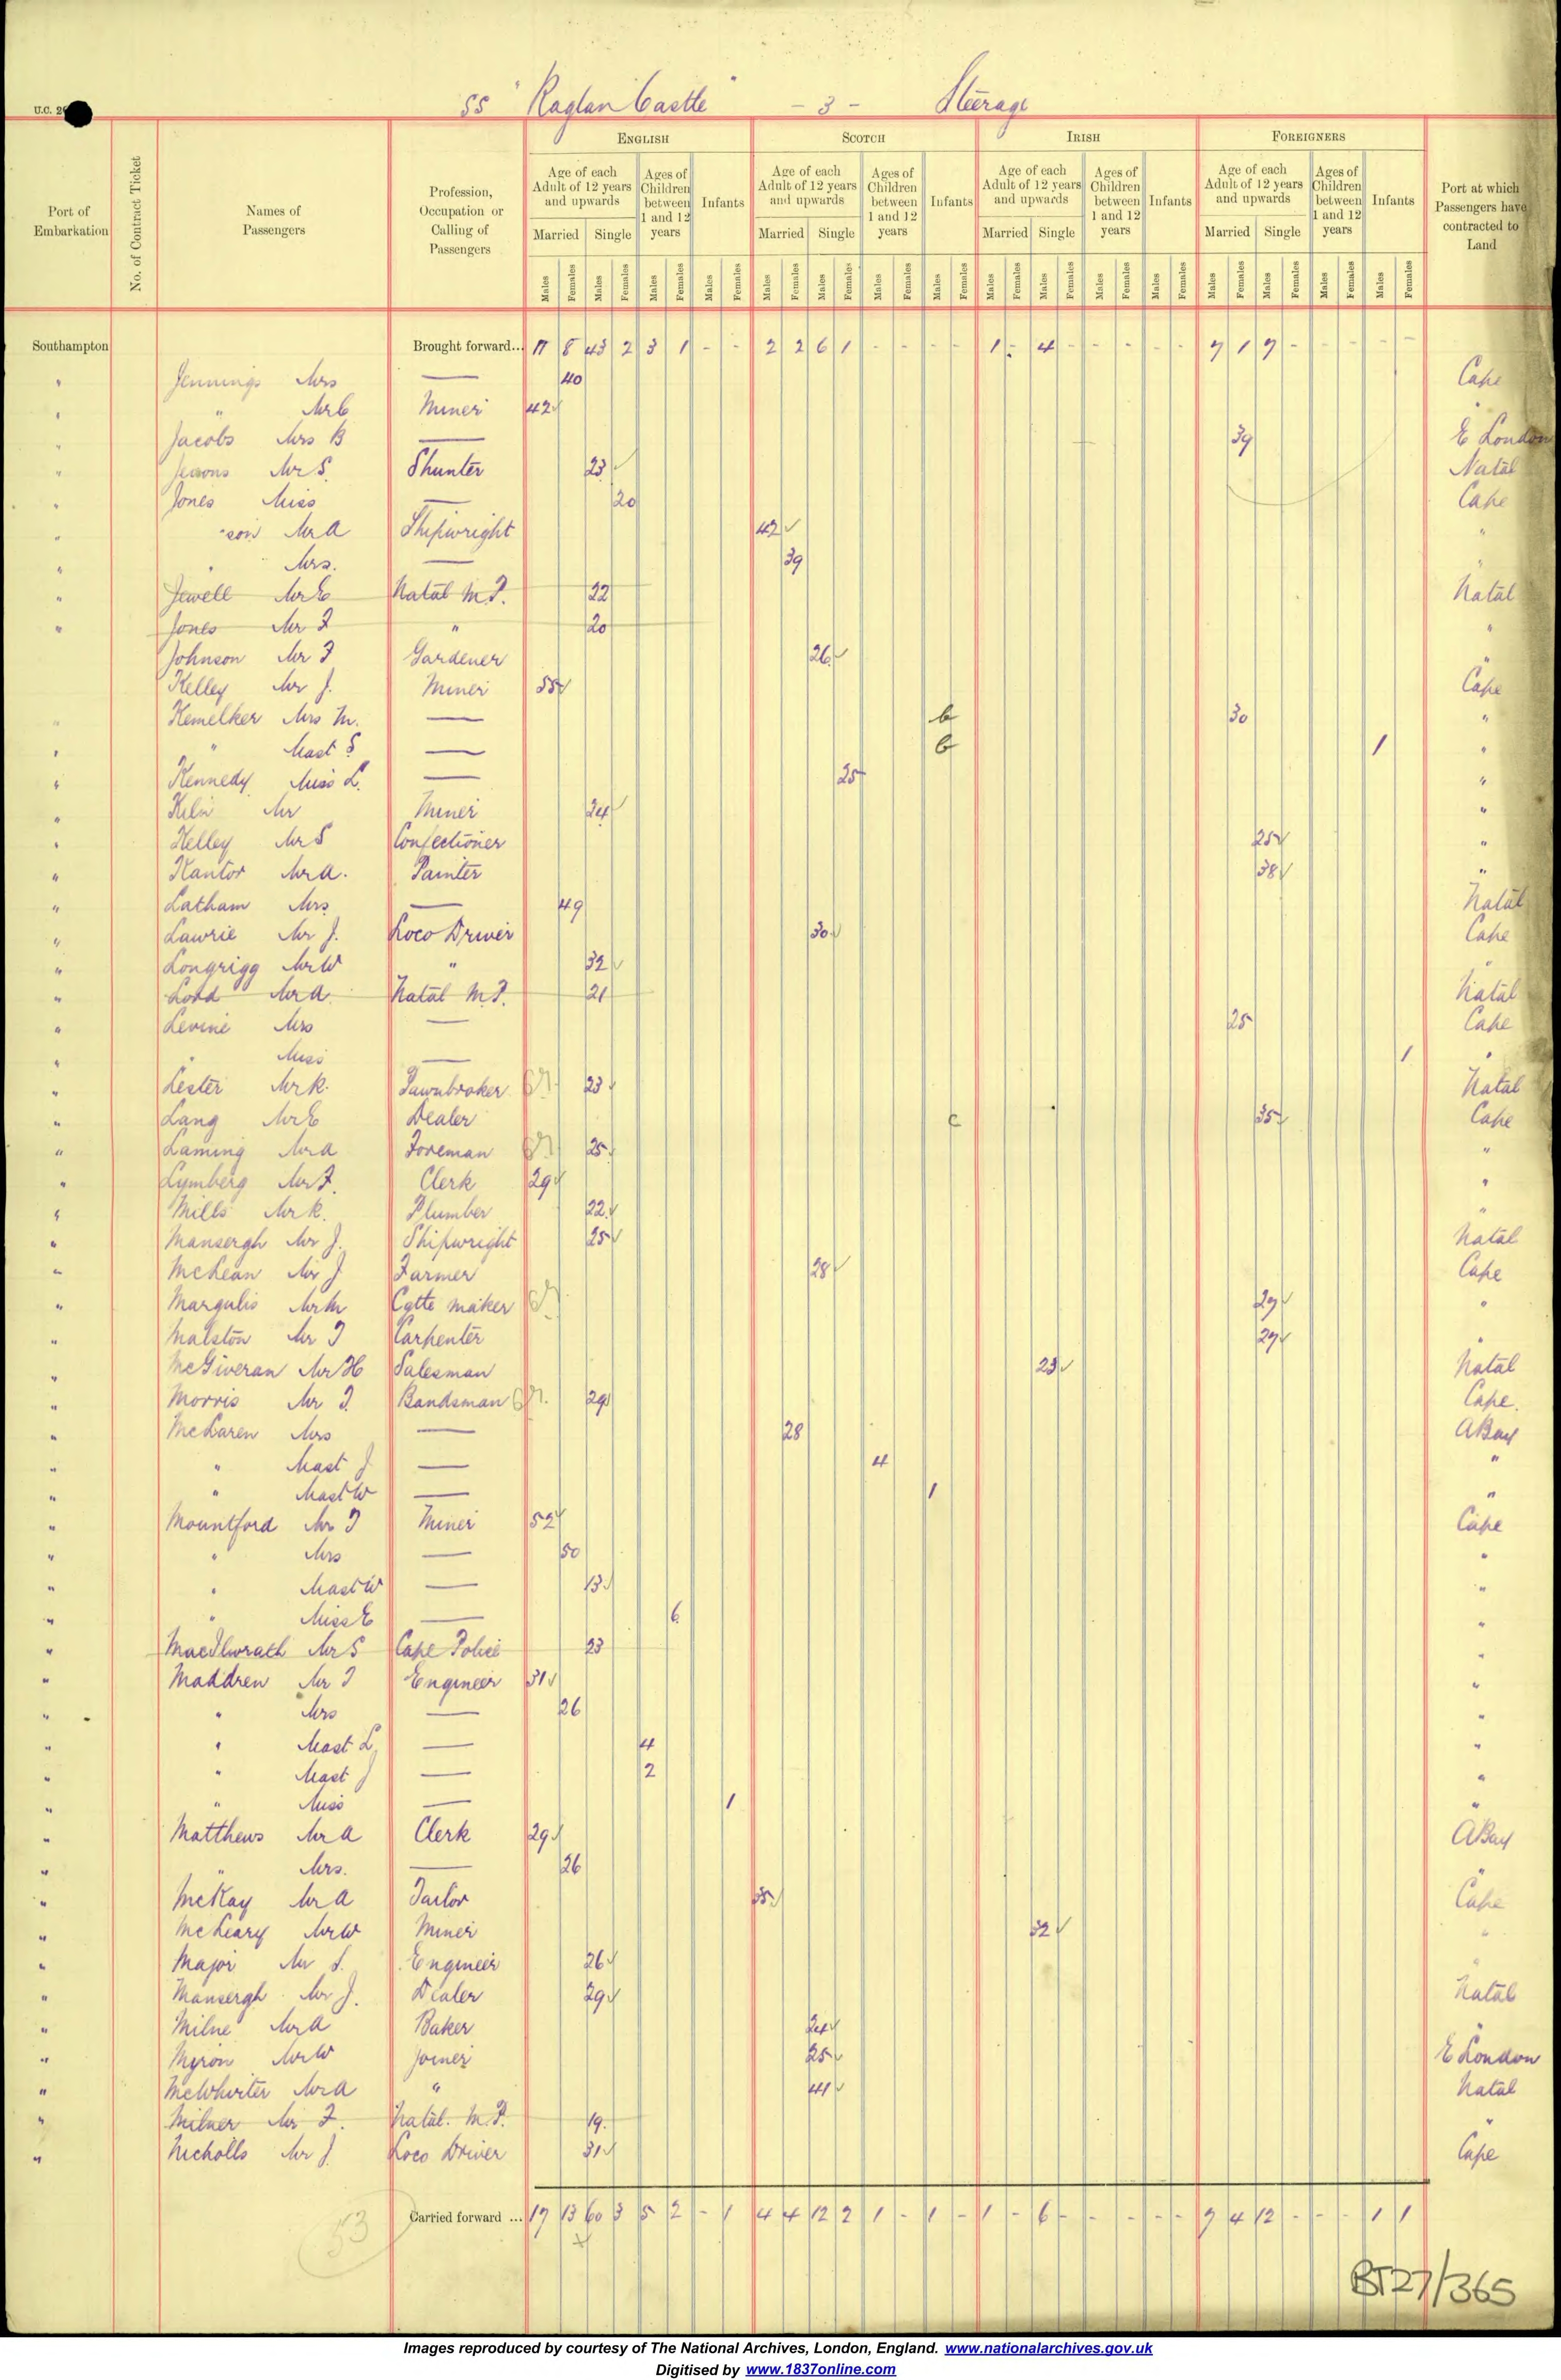 U.C. 2
SS "Raglan Castle" - 3 - Steerage
ENGLISH SCOTCH IRISH FOREIGNERS
Port of Embarkation
No. of Contract Ticket
Names of Passengers
Profession, Occupation or Calling of Passengers
Age of each Adult of 12 years and upwards Ages of Children between 1 and 12 years Infants
Age of each Adult of 12 years and upwards Ages of Children between 1 and 12 years Infants
Age of each Adult of 12 years and upwards Ages of Children between 1 and 12 years Infants
Age of each Adult of 12 years and upwards Ages of Children between 1 and 12 years Infants
Port at which Passengers have contracted to Land
Married Single Married Single Married Single Married Single
Males Females Males Females Males Females Males Females Males Females Males Females Males Females Males Females Males Females Males Females Males Females Males Females Males Females Males Females Males Females Males Females
Southampton Brought forward... 17 8 43 2 3 1 - - 2 2 6 1 - - - - 1 - 4 - - - - - 7 1 7 - - - - -
" Jennings Mrs — 40 Cape
" " Mr C Miner 42 "
" Jacobs Mrs B — 39 E London
" Mr S. Shunter 23 Natal
" Jones Miss — 20 Cape
" "son Mr A Shipwright 42 "
" " Mrs. — 39 "
" Jewell Mr E Natal M.P. 22 Natal
" Jones Mr F " 20 "
Johnson Mr F Gardener 26 "
Kelley Mr J. Miner 55 Cape
" Kemelker Mrs M. — 30 "
" " Mast S — 1 "
" Kennedy Miss L. — 25 "
" Mr Miner 24 "
" Kelley Mr S Confectioner 25 "
" Kantor Mr A. Painter 38 "
" Latham Mrs — 49 Natal
" Lawrie Mr J. Loco Driver 30 Cape
" Longrigg Mr W " 32 "
" Lord Mr A. Natal M.P. 21 Natal
" Levine Mrs — 25 Cape
" " Miss — 1 "
" Lester Mr R. Pawnbroker 23 Natal
" Lang Mr E Dealer c 35 Cape
" Laming Mr A Foreman 25 "
" Lymberg Mr F. Clerk 29 "
" Mills Mr R. Plumber 22 "
" Mansergh Mr J. Shipwright 25 Natal
" McLean Mr J Farmer 28 Cape
" Margulis Mr M Cgtte maker 27 "
" Malston Mr T Carpenter 27 "
" McGiveran Mr H Salesman 23 Natal
" Morris Mr T. Bandsman 29 Cape.
" McLaren Mrs — 28 A Bay
" " Mast J — 4 "
" " Mast W — 1 "
" Mountford Mr T Miner 52 Cape
" " Mrs — 50 "
" " Mast W — 13 "
" " Miss E — 6 "
" MacIlwrath Mr S Cape Police 23 "
" Maddren Mr T Engineer 31 "
" " Mrs — 26 "
" " Mast L. — 4 "
" " Mast J — 2 "
" " Miss — 1 "
" Matthews Mr A Clerk 29 A Bay
" " Mrs. — 26 "
" McKay Mr A Tailor 35 Cape
" McLeary Mr W Miner 32 "
" Major Mr S. Engineer 26 "
" Mansergh Mr J. Dealer 29 Natal
" Milne Mr A Baker 24 "
" Myron Mr W Joiner 25 E London
" McWhirter Mr A " 41 Natal
" Milner Mr F. Natal. M.P. 19 "
" Nicholls Mr J. Loco Driver 31 Cape
53
Carried forward ... 17 13 60 3 5 2 - 1 4 4 12 2 1 - 1 - 1 - 6 - - - - - 7 4 12 - - - 1 1
BT27/365
Images reproduced by courtesy of The National Archives, London, England. www.nationalarchives.gov.uk
Digitised by www.1837online.com